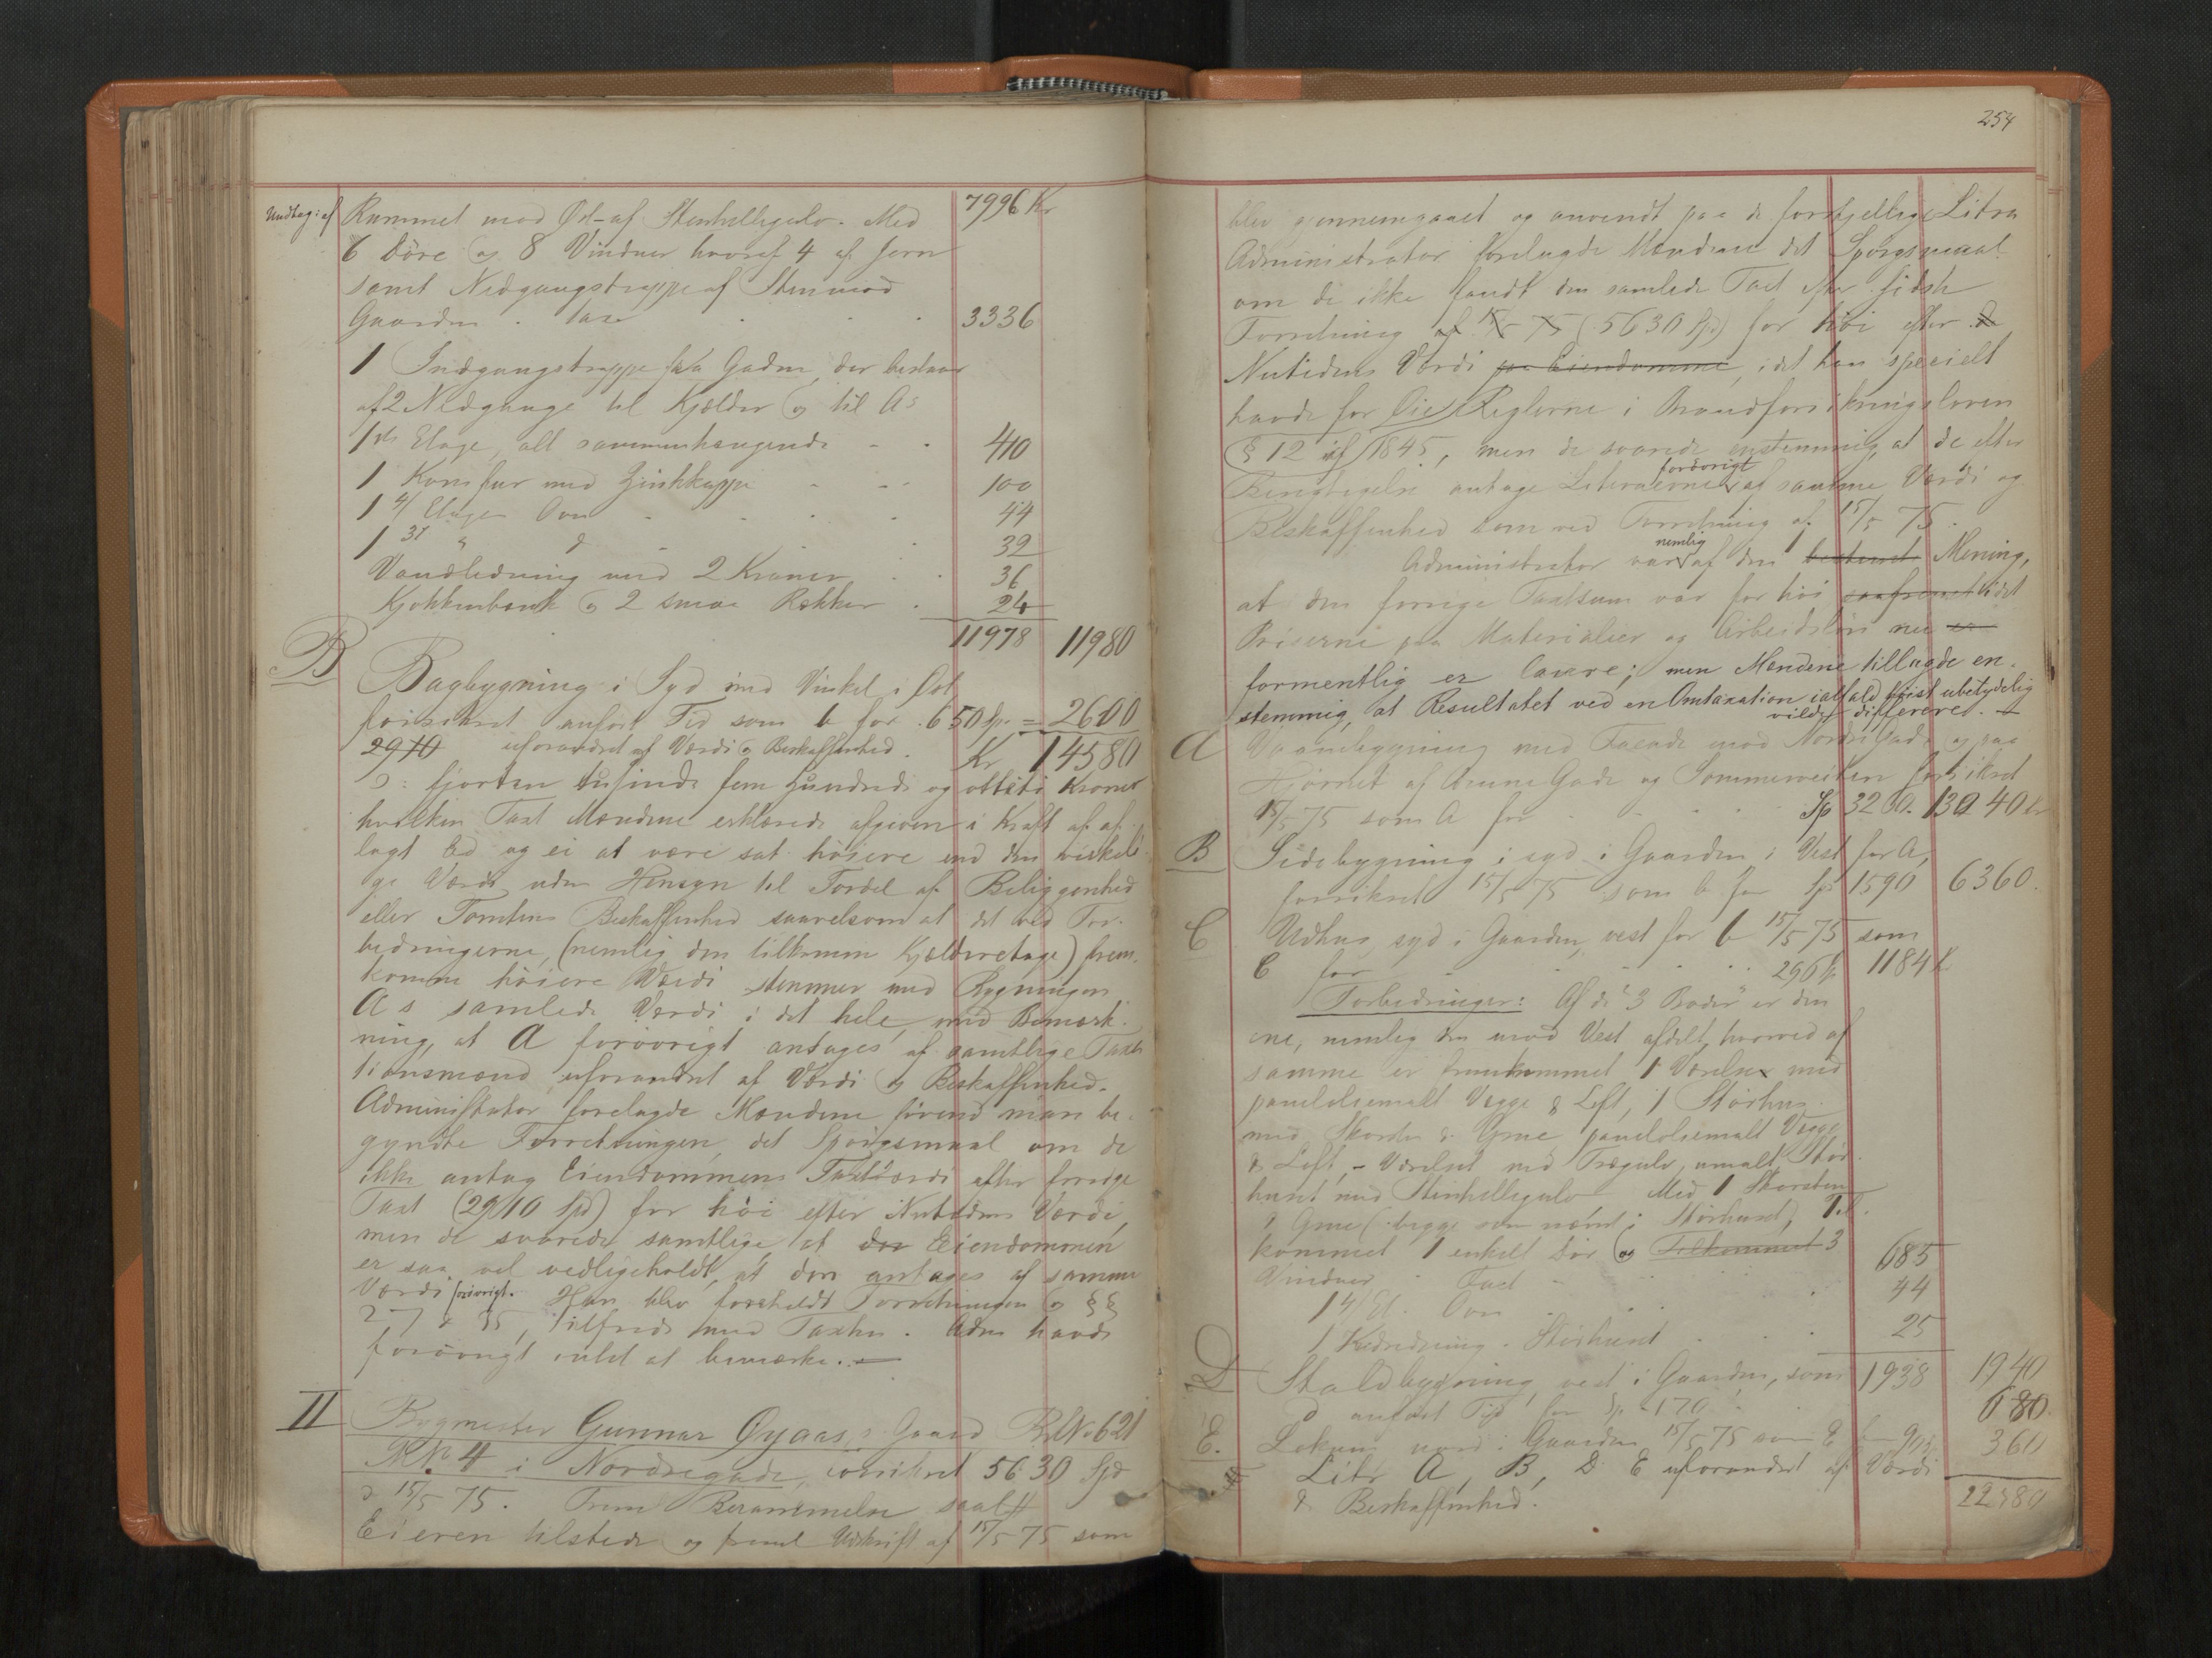 Undtag: af Rummet mod Øst af Stenhellegulv. Med 7996 Kr
6 Döre og 8 Vinduer hvoraf 4 af Jern
samt Nedgangstrappe af Sten mod
Gaarden . Taxt . . . 3336
1 Indgangstrappe fra Gaden, der bestaar
af 2 Nedgange til Kjælder og til A s
1ste Etage, alt sammenhængende - - 410
1 Komfur med Zinkkappe - - - 100
1 4/ Etages Ovn - . . . 44
1 3/ " d - . . 32
Vandledning med 2 Kraner . . 36
Kjøkkenbænk og 2 smaa Rækker . 24
11978 11980
B Bagbygning i Syd med Vinkel i Øst
forsikret anført Tid som b for 650 Sp = 2600
2910 uforandret af Værdi og Beskaffenhed. Kr 14580
ɔ: fjorten tusinde fem hundrede og otteti Kroner
hvilken Taxt Mændene erklærede afgiven i Kraft af af-
lagt Ed og ei at være sat höiere end den virkeli-
ge Værdi uden Hensyn til Fordel af Beliggenhed
eller Tomtens Beskaffenhed saavelsom at det ved For-
bedringerne, (nemlig den tilkomne Kjælderetage) frem-
komne höiere Værdi stemmer med Bygningen
A s samlede Værdi i det hele, med Bemærk-
ning, at A forövrigt antages af samtlige Taxa-
tionsmænd uforandret af Værdi og Beskaffenhed.
Administrator forelagde Mændene förend man be-
gyndte Forretningen, det Spörgsmaal om de
ikke antog Eiendommens Taxtværdi efter forrige
Taxt (2910 Spd) for höi efter Nutidens Værdi,
men de svarede samtlige, at den Eiendommen
er saa vel vedligeholdt, at den antages af samme
Værdi forövrigt. Han blev foreholdt Forretningen og §§
27 & 35, tilfreds med Taxten. Adm havde
forövrigt intet at bemærke. —
II Bygmester Gunnar Øyaas s Gaard BrNo 621
RNo 4 i Nordregade, forsikret 5630 Spd
d 15/5 75. Frem Berammelse saal
Eieren tilstede og freml Udskrift af 15/5 75 som
254
blev gjennemgaaet og anvendt paa de forskjellige Litra
Administrator forelagde Mændene det Spörgsmaal
om de ikke fandt den samlede Taxt efter sidste
Forretning af 15/5 75 (5630 Spd) for höi efter d
Nutidens Værdi paa Eiendomme, idet han specielt
havde for Øie Reglerne i Brandforsikringsloven
§ 12 af 1845, men de svarede enstemmig, at de efter
Besigtigelse antage Literaerne forövrigt af samme Værdi og
Beskaffenhed som ved Forretning af 15/5 75.
Administrator var nemlig af den bestemte Mening,
at den forrige Taxtsum var for höi saafremt idet
Priserne paa Materialier og Arbeidslön nu er
formentlig er lavere; men Mændene tillagde en-
stemmig, at Resultatet ved en Omtaxation ialfald höist ubetydelig
vilde differeret. —
A Vaaningsbygning med Facade mod Nordregade og paa
Hjörnet af Brune Gade og Sommerveiten forsikret
15/5 75 som A for . . . Sp 3260. 13040 kr
B Sidebygning i syd i Gaarden i Vest for A,
forsikret 15/5 75 som b for Sp 1590 6360.
C Udhus, syd i Gaarden, vest for b 15/5 75 som
C for . . . . 296 Sp 1184 k
Forbedringer: Af de "3 Boder" er den
ene, nemlig den mod Vest afdelt, hvorved af
samme er fremkommet 1 Værelse med
panelet oliemalt Vægge & Loft, 1 Störhus
med Skorsten & Grue panel oliemalt Vægge
& Loft, - Værelset med Trægulv, umalt, Stör-
huset med Stenhellegulv Med 1 Skorsten
& Grue (begge som nævnt i Störhuset) Til-
kommet 1 enkelt Dör og Tilkommet 3
Vinduer . Taxt - . . . 685
1 4/ Et. Ovn . . . . 44
1 Störhuset . . . 25
1938 1940
D Staldbygning, vest i Gaarden, som
d anfört Tid for Sp 170 . . 680.
E. Lokum nord i Gaarden 15/5 75 som E for 90 Sp. 360
Litr A, B, D E uforandret af Værdi
& Beskaffenhed.
22380